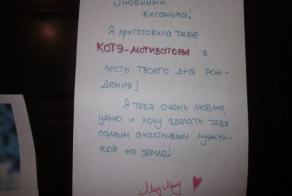 Любимый
Кисанька!
Я приготовила тебе
КОТЭ-мотиваторы в
честь твоего дня рож-
дения!
Я тебя очень люблю,
ценю и хочу сделать тебя
самым счастливым мужчи-
ной на земле!